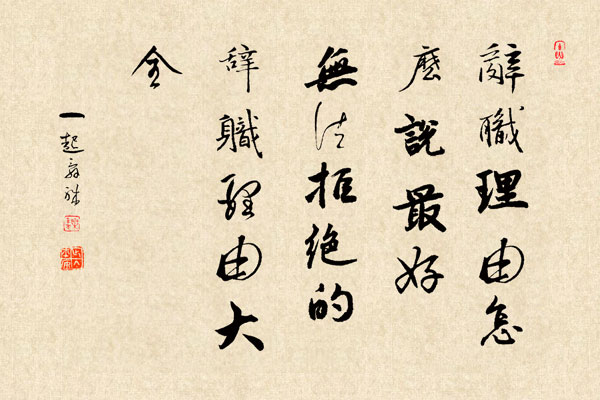 辭職理由怎
麽說最好
無法拒絕的
辭職理由大
全
一起